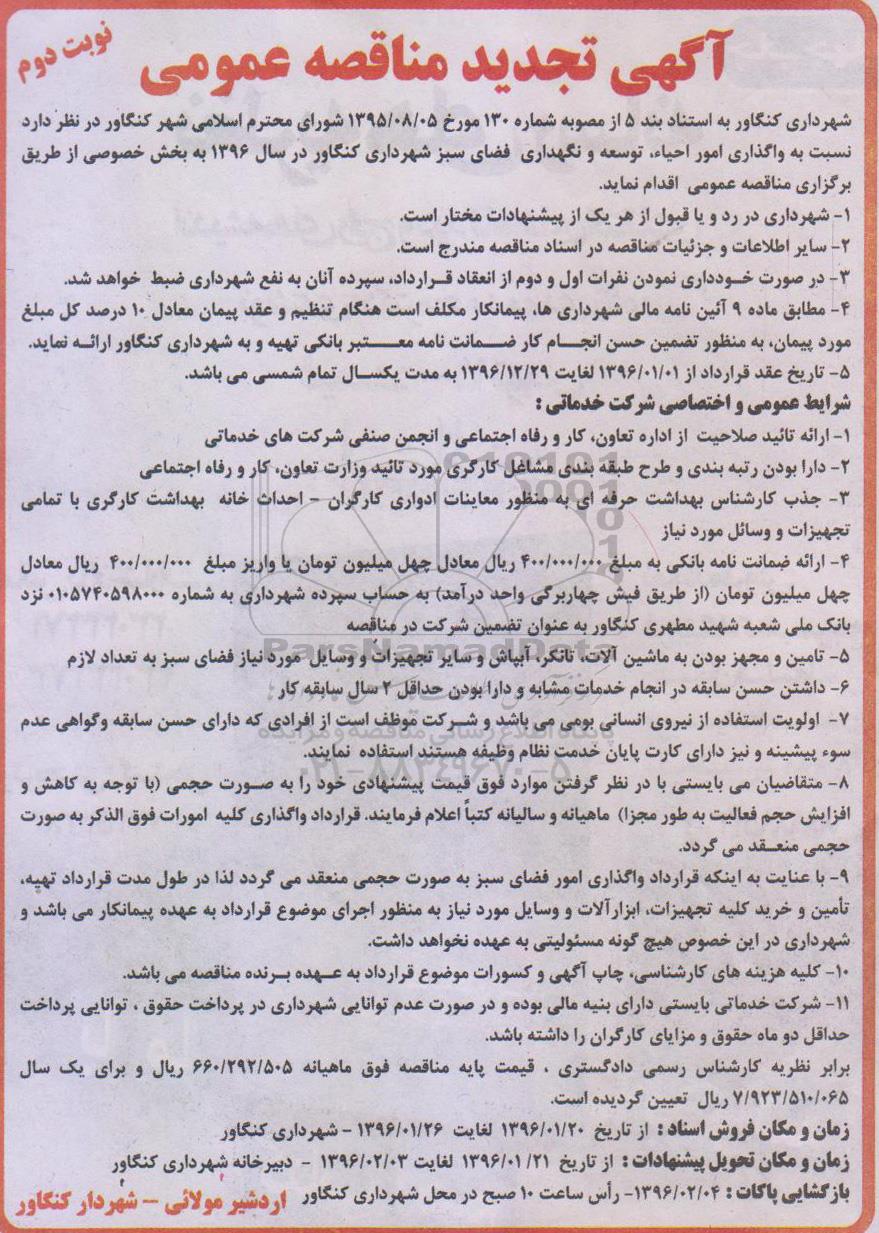 نوبت دوم
آگهی تجدید مناقصه عمومی
شهرداری کنگاور به استناد بند ۵ از مصوبه شماره ۱۳۰ مورخ ۱۳۹۵/۰۸/۰۵ شورای محترم اسلامی شهر کنگاور در نظر دارد
نسبت به واگذاری امور احیاء، توسعه و نگهداری فضای سبز شهرداری کنگاور در سال ۱۳۹۶ به بخش خصوصی از طریق
برگزاری مناقصه عمومی اقدام نماید.
۱- شهرداری در رد و یا قبول از هر یک از پیشنهادات مختار است.
۲- سایر اطلاعات و جزئیات مناقصه در اسناد مناقصه مندرج است.
۳- در صورت خودداری نمودن نفرات اول و دوم از انعقاد قرارداد، سپرده آنان به نفع شهرداری ضبط خواهد شد.
۴- مطابق ماده ۹ آئین نامه مالی شهرداری ها، پیمانکار مکلف است هنگام تنظیم و عقد پیمان معادل ۱۰ درصد کل مبلغ
مورد پیمان، به منظور تضمین حسن انجام کار ضمانت نامه معتبر بانکی تهیه و به شهرداری کنگاور ارائه نماید.
۵- تاریخ عقد قرارداد از ۱۳۹۶/۰۱/۰۱ لغایت ۱۳۹۶/۱۲/۲۹ به مدت یکسال تمام شمسی می باشد.
شرایط عمومی و اختصاصی شرکت خدماتی :
۱- ارائه تائید صلاحیت از اداره تعاون، کار و رفاه اجتماعی و انجمن صنفی شرکت های خدماتی
۲- دارا بودن رتبه بندی و طرح طبقه بندی مشاغل کارگری مورد تائید وزارت تعاون، کار و رفاه اجتماعی
۳- جذب کارشناس بهداشت حرفه ای به منظور معاینات ادواری کارگران - احداث خانه بهداشت کارگری با تمامی
تجهیزات و وسائل مورد نیاز
۴- ارائه ضمانت نامه بانکی به مبلغ ۴۰۰/۰۰۰/۰۰۰ ریال معادل چهل میلیون تومان یا واریز مبلغ ۴۰۰/۰۰۰/۰۰۰ ریال معادل
چهل میلیون تومان (از طریق فیش چهاربرگی واحد درآمد) به حساب سپرده شهرداری به شماره ۰۱۰۵۷۴۰۵۹۸۰۰۰ نزد
بانک ملی شعبه شهید مطهری کنگاور به عنوان تضمین شرکت در مناقصه
۵- تامین و مجهز بودن به ماشین آلات، تانکر، آبپاش و سایر تجهیزات و وسایل مورد نیاز فضای سبز به تعداد لازم
۶- داشتن حسن سابقه در انجام خدمات مشابه و دارا بودن حداقل ۲ سال سابقه کار
۷- اولویت استفاده از نیروی انسانی بومی می باشد و شرکت موظف است از افرادی که دارای حسن سابقه وگواهی عدم
سوء پیشینه و نیز دارای کارت پایان خدمت نظام وظیفه هستند استفاده نمایند.
۸- متقاضیان می بایستی با در نظر گرفتن موارد فوق قیمت پیشنهادی خود را به صورت حجمی (با توجه به کاهش و
افزایش حجم فعالیت به طور مجزا) ماهیانه و سالیانه کتباً اعلام فرمایند. قرارداد واگذاری کلیه امورات فوق الذکر به صورت
حجمی منعقد می گردد.
۹- با عنایت به اینکه قرارداد واگذاری امور فضای سبز به صورت حجمی منعقد می گردد لذا در طول مدت قرارداد تهیه،
تأمین و خرید کلیه تجهیزات، ابزارآلات و وسایل مورد نیاز به منظور اجرای موضوع قرارداد به عهده پیمانکار می باشد و
شهرداری در این خصوص هیچ گونه مسئولیتی به عهده نخواهد داشت.
۱۰- کلیه هزینه های کارشناسی، چاپ آگهی و کسورات موضوع قرارداد به عهده برنده مناقصه می باشد.
۱۱- شرکت خدماتی بایستی دارای بنیه مالی بوده و در صورت عدم توانایی شهرداری در پرداخت حقوق ، توانایی پرداخت
حداقل دو ماه حقوق و مزایای کارگران را داشته باشد.
برابر نظریه کارشناس رسمی دادگستری ، قیمت پایه مناقصه فوق ماهیانه ۶۶۰/۲۹۲/۵۰۵ ریال و برای یک سال
۷/۹۲۳/۵۱۰/۰۶۵ ریال تعیین گردیده است.
زمان و مکان فروش اسناد : از تاریخ ۱۳۹۶/۰۱/۲۰ لغایت ۱۳۹۶/۰۱/۲۶ - شهرداری کنگاور
زمان و مکان تحویل پیشنهادات : از تاریخ ۱۳۹۶/۰۱/۲۱ لغایت ۱۳۹۶/۰۲/۰۳ - دبیرخانه شهرداری کنگاور
بازگشایی پاکات : ۱۳۹۶/۰۲/۰۴- رأس ساعت ۱۰ صبح در محل شهرداری کنگاور
اردشیر مولائی - شهردار کنگاور
ParsNamadData
پایگاه اطلاع رسانی مناقصه و مزایده
۰۲۱-۸۸۳۴۹۶۷۰-۵